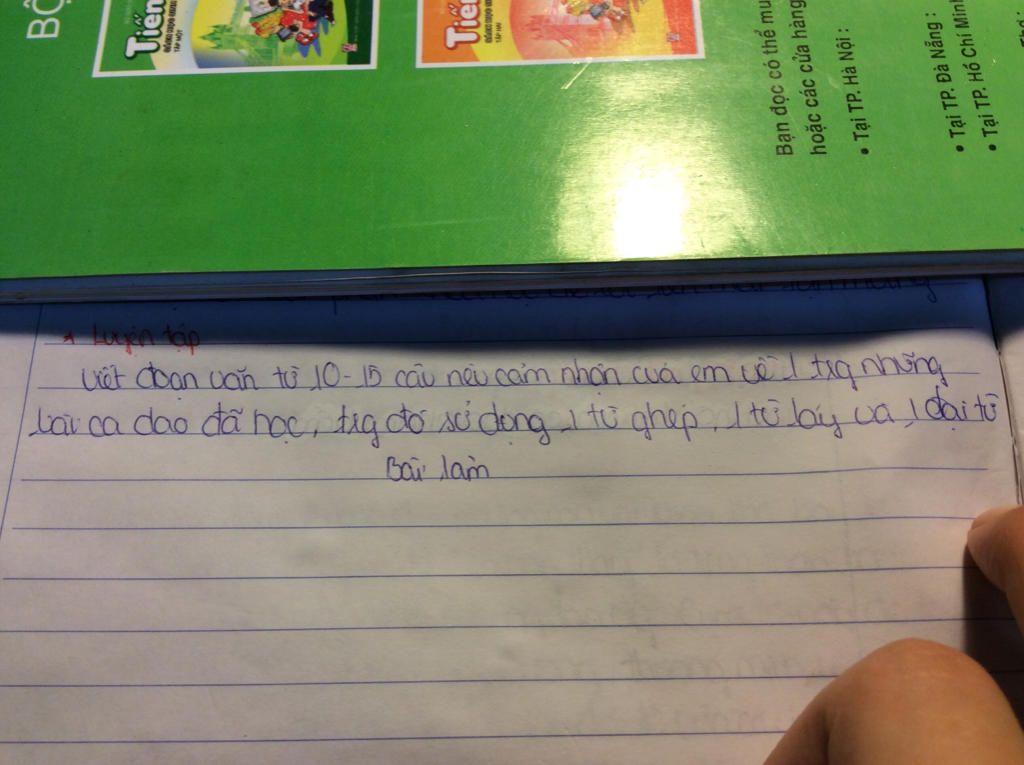 BỘ
Tiến
TẬP MỘT
Tiến
TẬP HAI
Bạn đọc có thể mu
hoặc các cửa hàng
• Tại TP. Hà Nội :
• Tại TP. Đà Nẵng :
• Tại TP. Hồ Chí Minh
* Luyện tập
Viết đoạn văn từ 10-15 câu nêu cảm nhận của em về 1 trg những
bài ca dao đã học, trg đó sử dụng 1 từ ghép, 1 từ láy và 1 đại từ
Bài làm